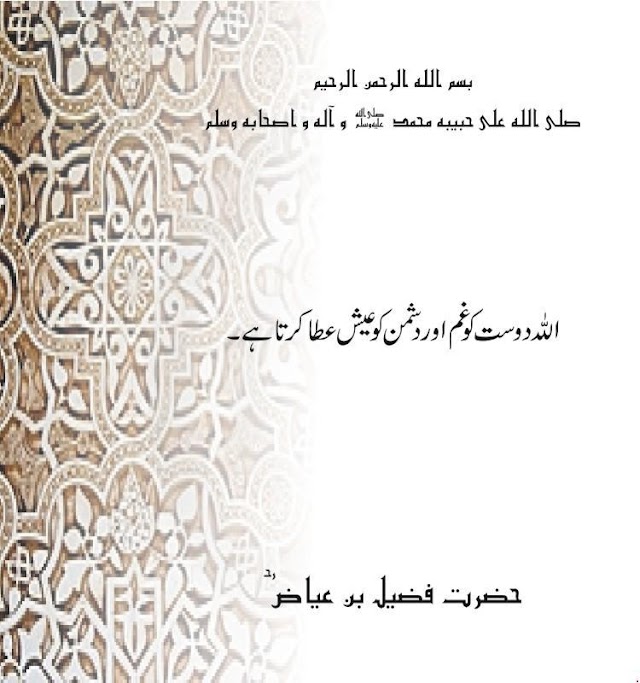 بسم الله الرحمن الرحيم
صلى الله على حبيبه محمد ﷺ و آله و اصحابه وسلم
اللہ دوست کو غم اور دشمن کو عیش عطا کرتا ہے۔
حضرت فضیل بن عیاضؒ